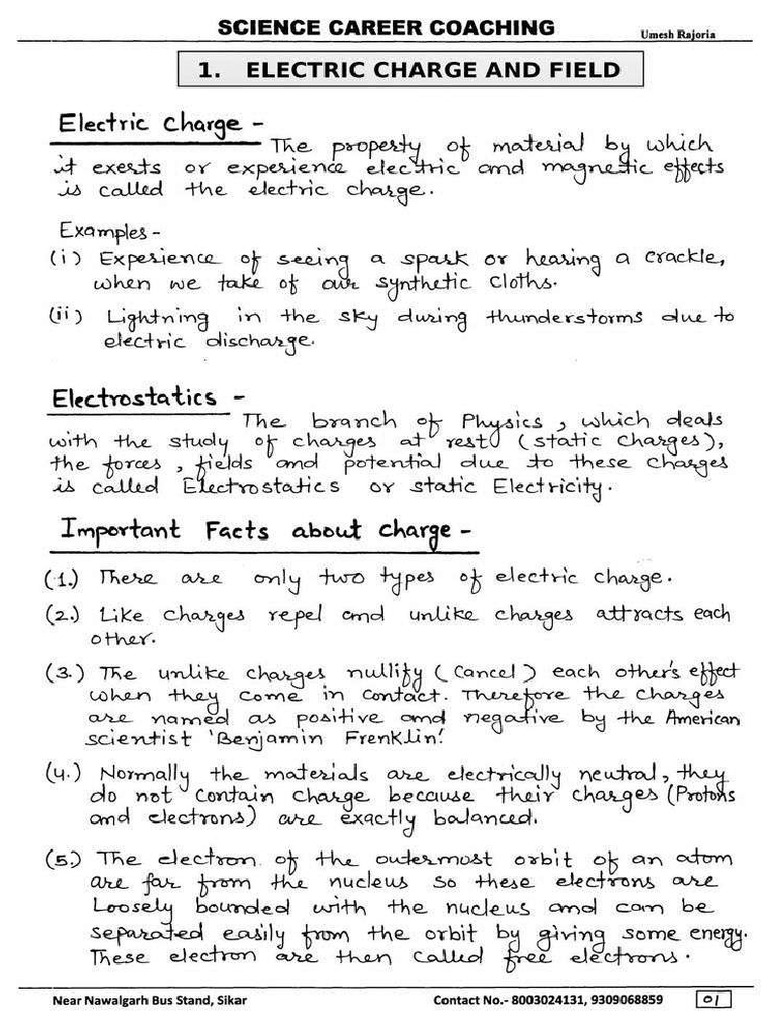 SCIENCE CAREER COACHING
Umesh Rajoria
1. ELECTRIC CHARGE AND FIELD
Electric Charge -
The property of material by which
it exerts or experience electric and magnetic effects
is called the electric charge.
Examples -
(i) Experience of seeing a spark or hearing a crackle,
when we take of our synthetic cloths.
(ii) Lightning in the sky during thunderstorms due to
electric discharge.
Electrostatics -
The branch of Physics, which deals
with the study of charges at rest (static charges),
the forces, fields and potential due to these charges
is called Electrostatics or static Electricity.
Important Facts about charge -
(1.) There are only two types of electric charge.
(2.) Like charges repel and unlike charges attracts each
other.
(3.) The unlike charges nullify (cancel) each other's effect
when they come in contact. Therefore the charges
are named as positive and negative by the American
scientist 'Benjamin Frenklin'.
(4.) Normally the materials are electrically neutral, they
do not contain charge because their charges (Protons
and electrons) are exactly balanced.
(5.) The electron of the outermost orbit of an atom
are far from the nucleus so these electrons are
Loosely bounded with the nucleus and can be
separated easily from the orbit by giving some energy.
These electron are then called free electrons.
Near Nawalgarh Bus Stand, Sikar
Contact No.- 8003024131, 9309068859
01